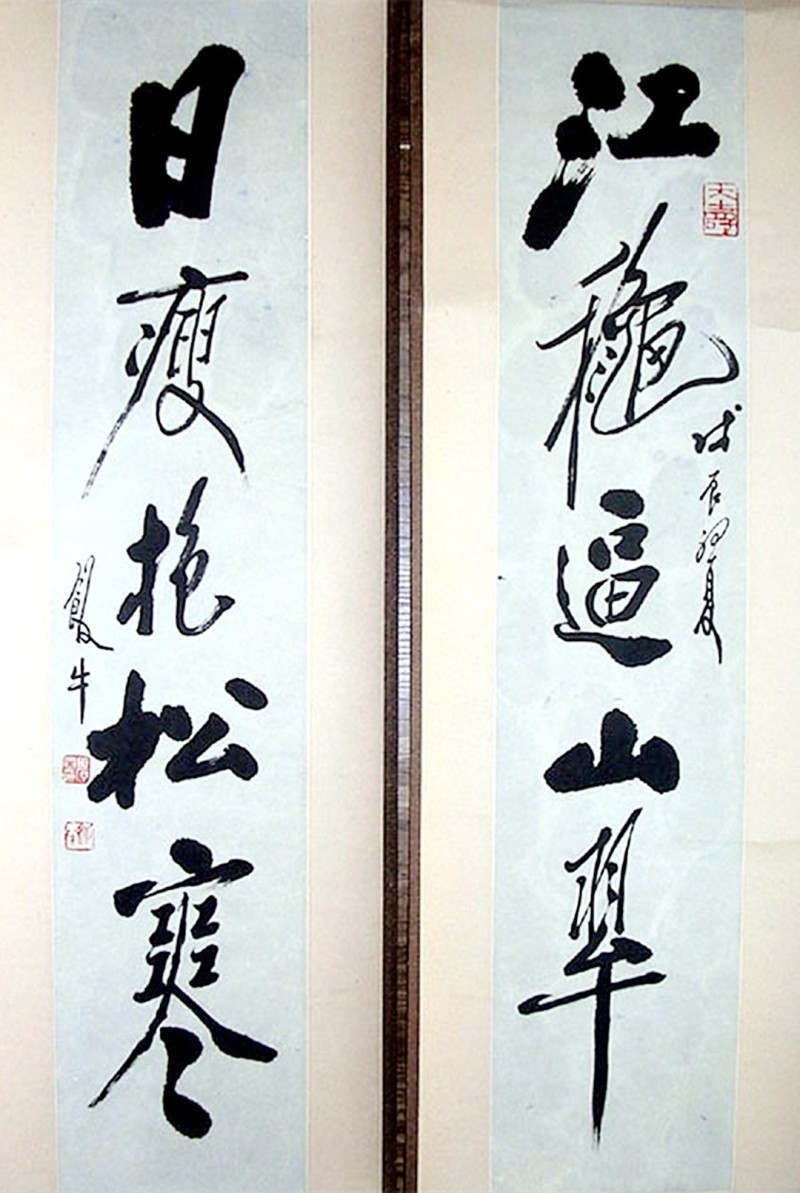 江龝逼山翠
戊辰初夏
日瘦抱松寒
牛